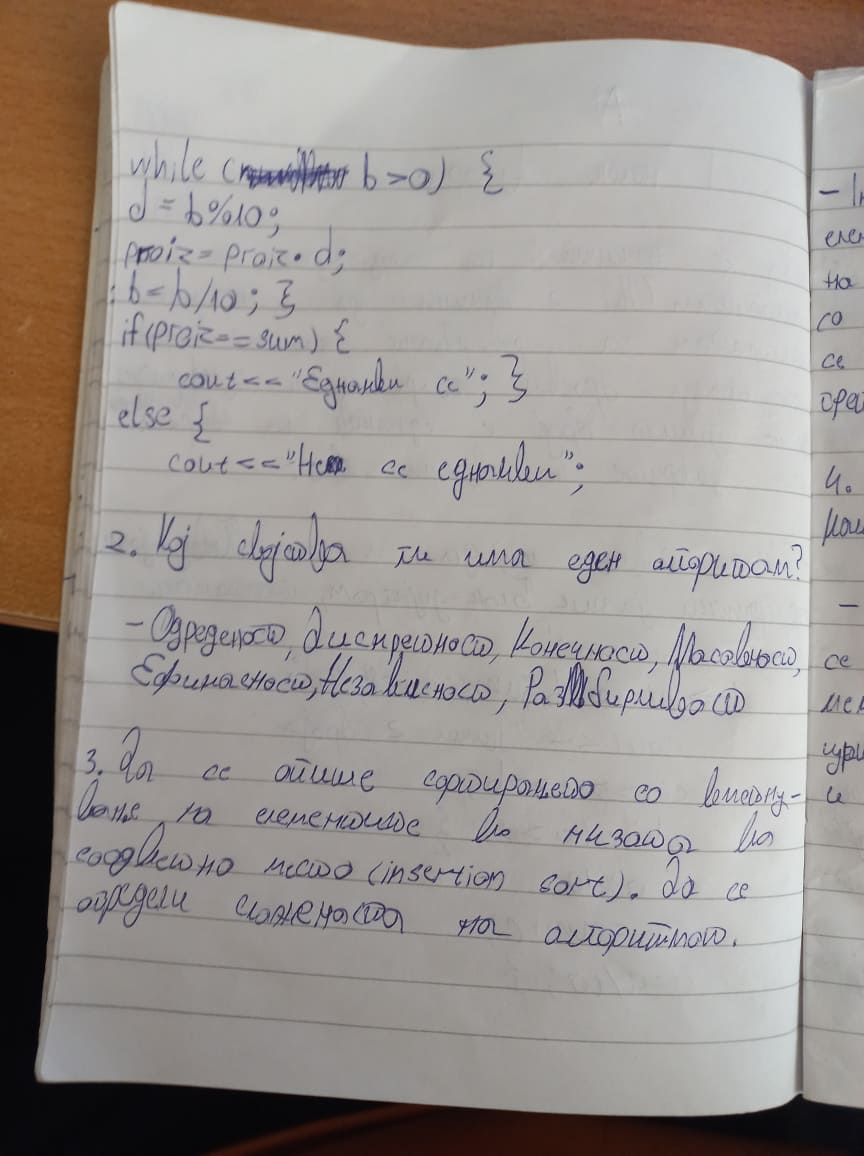 while (b>0) {
d = b%10;
proiz = proiz * d;
b = b/10; }
if(proiz==sum) {
cout<<"Еднакви се"; }
else {
cout<<"Не се еднакви";
2. Кој својства ги има еден алгоритам?
- Одреденост, Дискретност, Конечност, Масовност,
Ефикасност, Независност, Разбирливост
3. Да се опише сортирањето со вметну-
вање на елементите во низата на
соодветно место (insertion sort). Да се
определи сложеноста на алгоритмот.
- 
на
со
се
4.
-
се
и